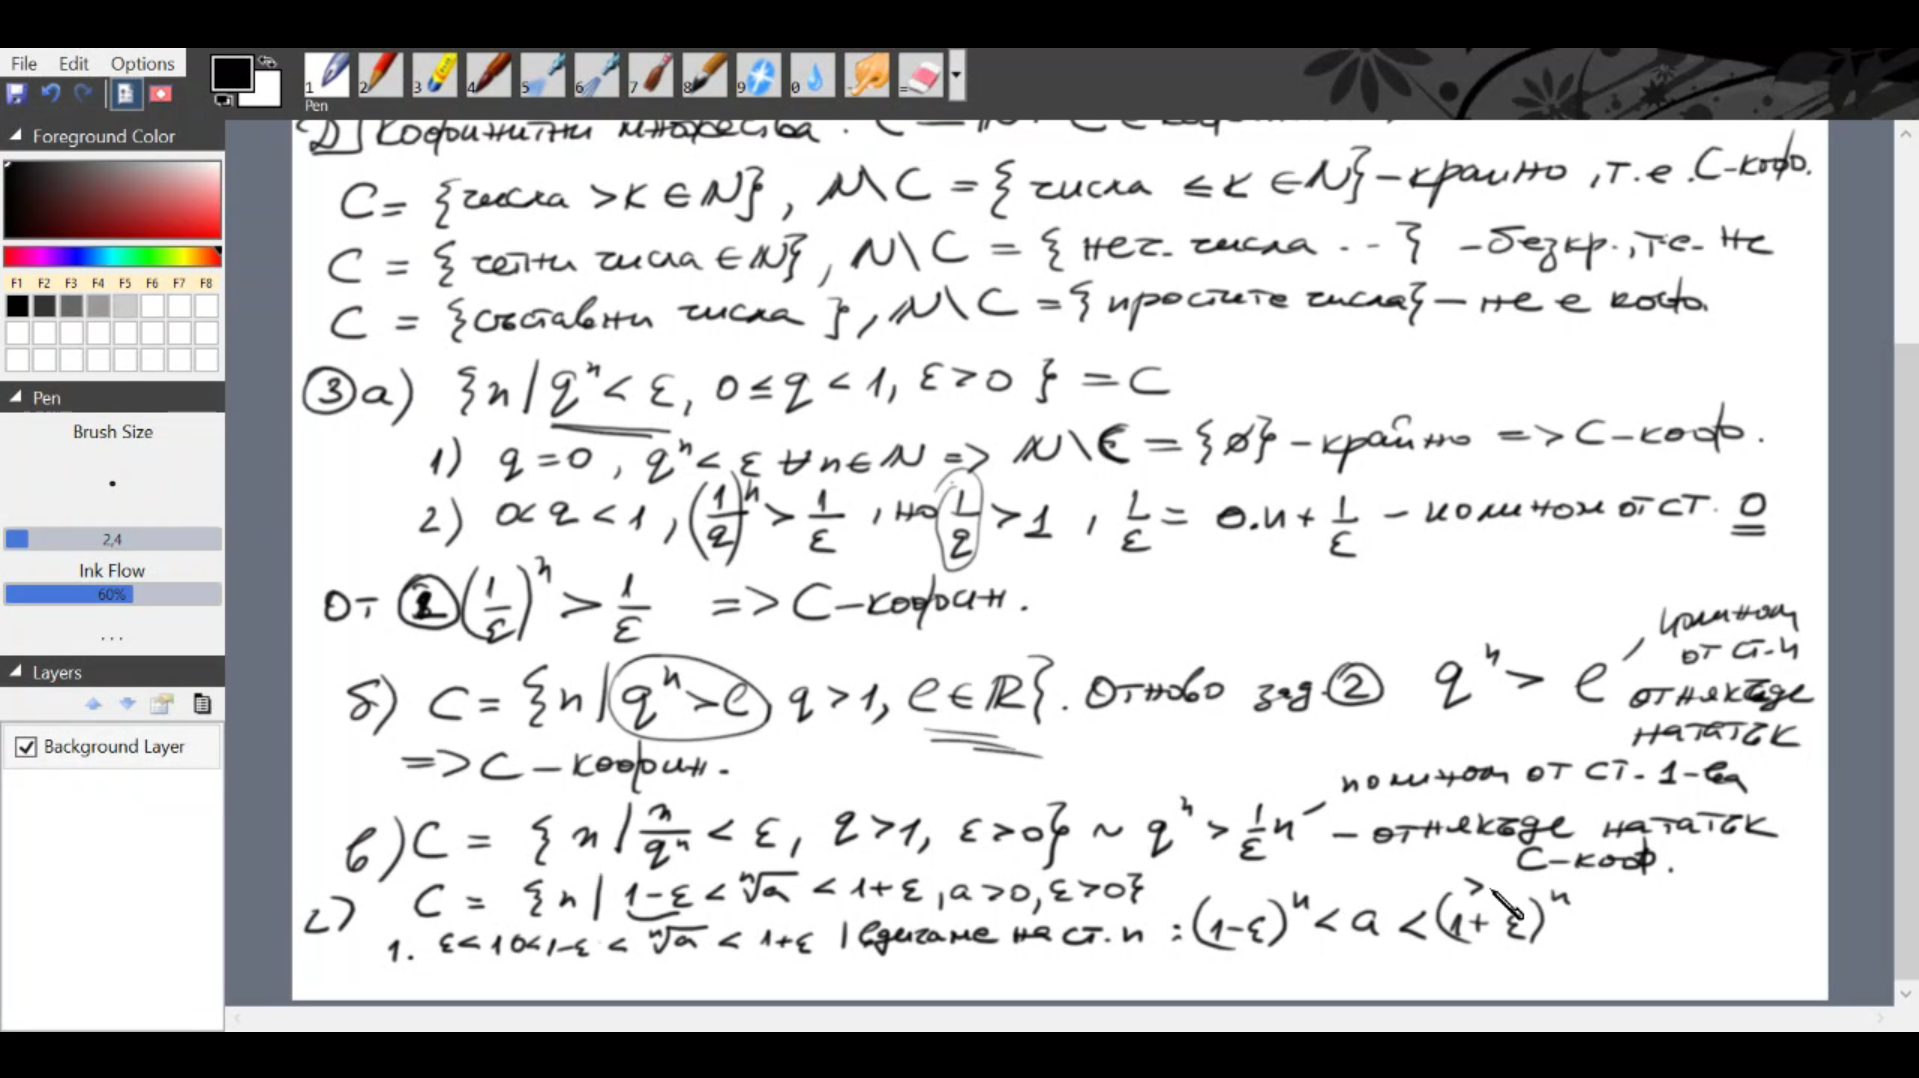 File Edit Options
1 2 3 4 5 6 7 8 9 0 - =
Pen
Foreground Color
F1 F2 F3 F4 F5 F6 F7 F8
Pen
Brush Size
2,4
Ink Flow
60%
...
Layers
Background Layer
Кофинитни множества.
C = {числа > k ∈ N}, N\C = {числа ≤ k ∈ N} - крайно, т.е. C-кофо.
C = {четни числа ∈ N}, N\C = {неч. числа ..} - безкр., т.е. не
C = {съставни числа}, N\C = {простите числа} - не е кофо.
③ а) {n | qⁿ < ε, 0 ≤ q < 1, ε > 0} = C
1) q = 0, qⁿ < ε ∀n ∈ N => N\C = {∅} - крайно => C-коф.
2) 0 < q < 1, (1/q)ⁿ > 1/ε, но 1/q > 1, 1/ε = 0.n + 1/ε - полином от ст. 0
От ② (1/ε)ⁿ > 1/ε => C-кофин.
б) C = {n | qⁿ > e, q > 1, e ∈ R}. Отново зад. ② qⁿ > e
полином
от ст-н
отнякъде
нататък
=> C - кофин.
полином от ст. 1-ва
в) C = {n | n/qⁿ < ε, q > 1, ε > 0} ~ qⁿ > 1/ε n - отнякъде нататък
C-коф.
г) C = {n | 1-ε < ⁿ√a < 1+ε, a > 0, ε > 0}
1. ε < 1 0 < 1-ε < ⁿ√a < 1+ε | вдигаме на ст. n : (1-ε)ⁿ < a < (1+ε)ⁿ
>